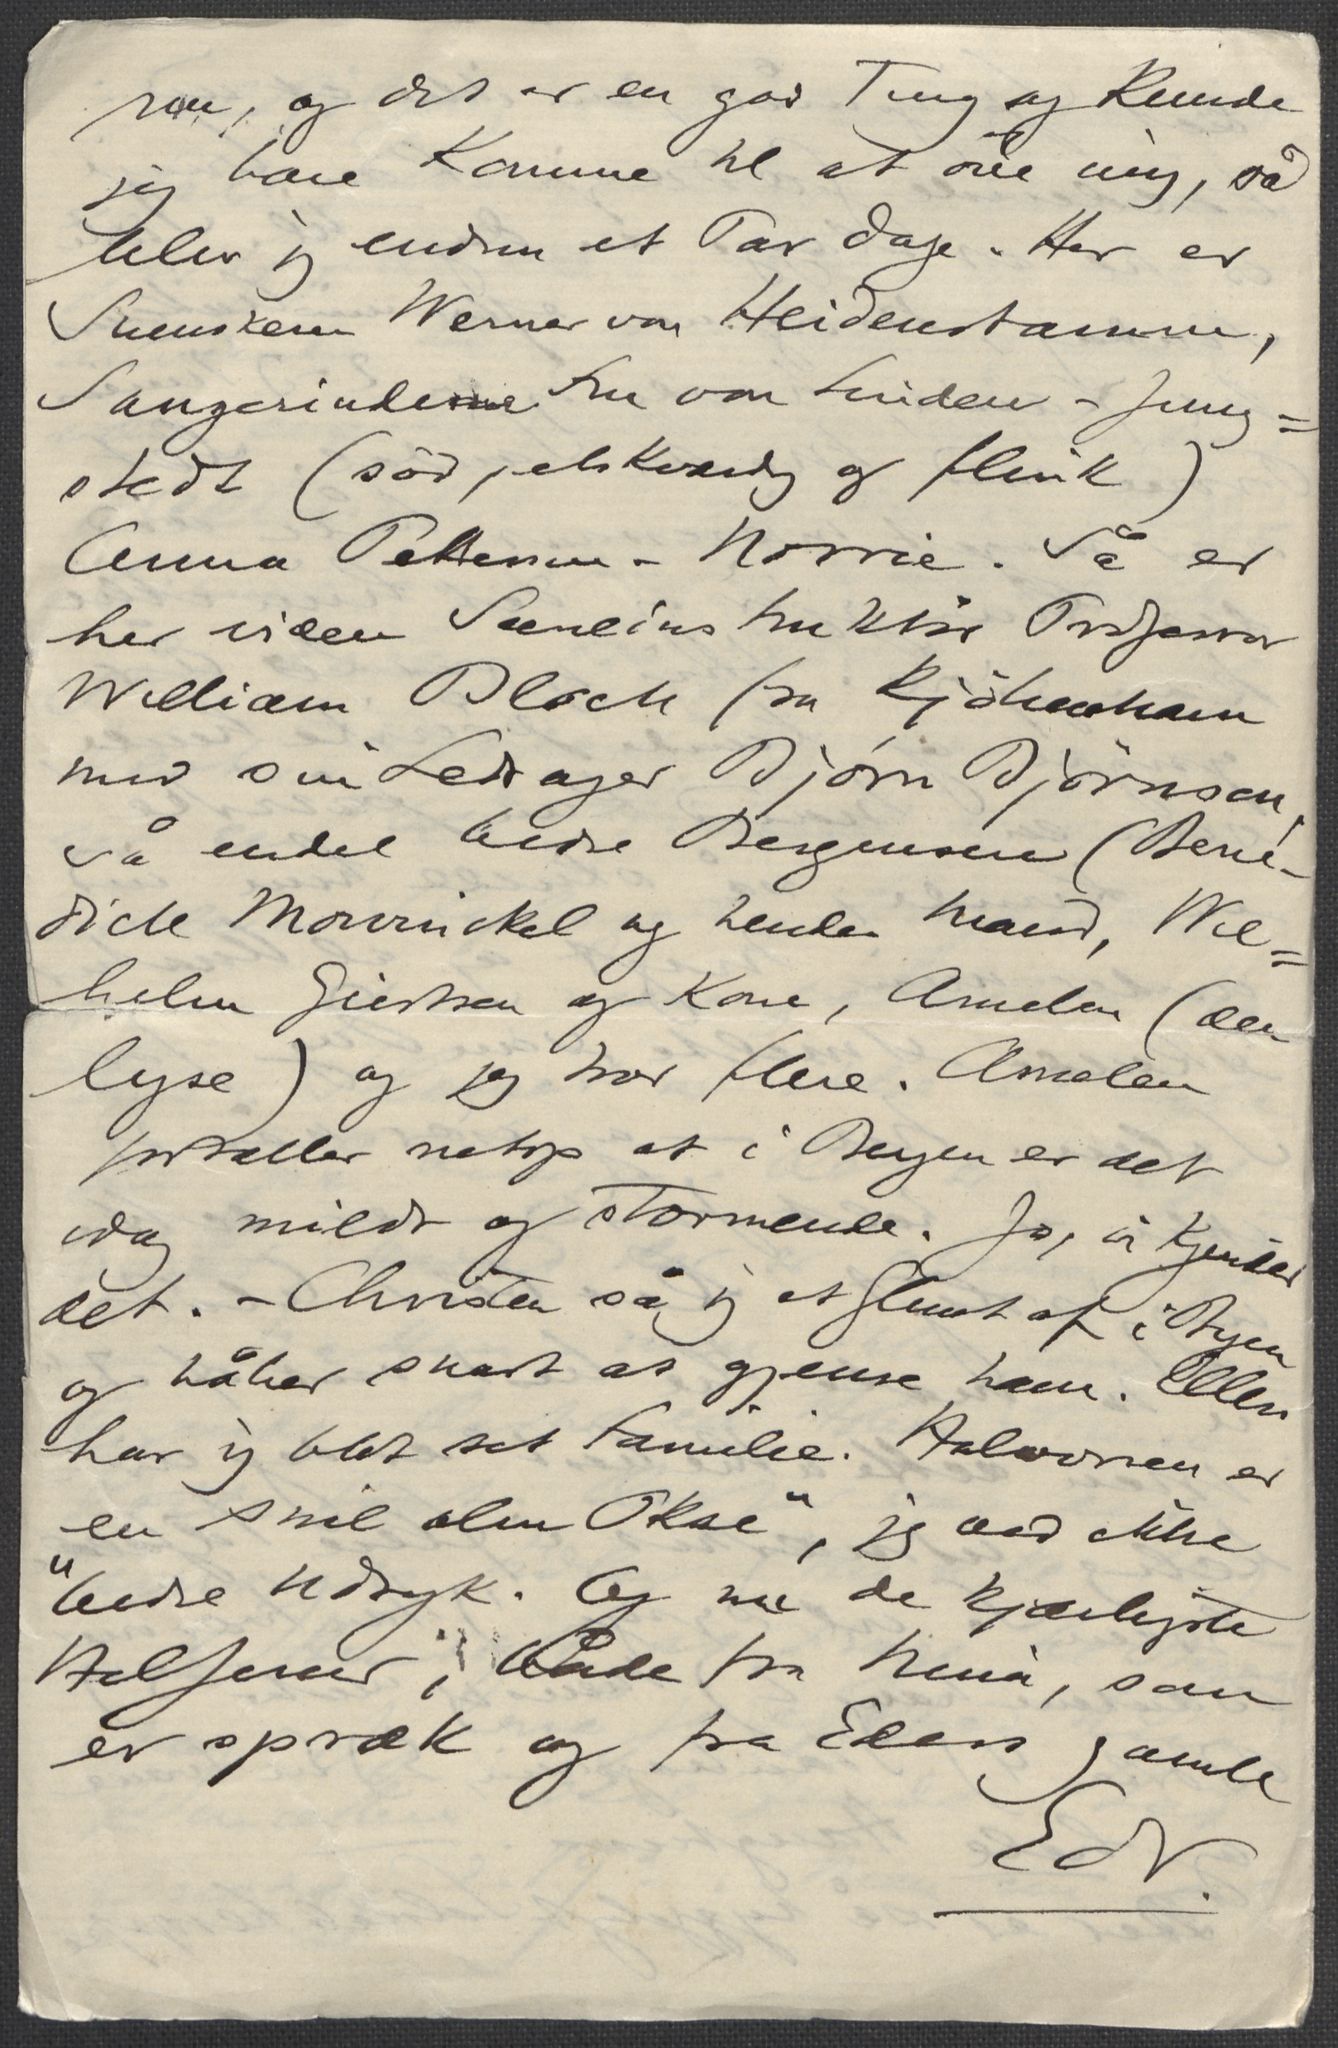 nu, og det er en god Ting og kunde
jeg bare komme til at øve mig, så
blev jeg endnu et Par Dage. Her er
Svensken Werner von Heidenstamm,
Sangerinderne Fru von Linden - Jung=
stedt (söd, elskværdig og flink)
Anna Pettersen - Norrie. Så er
her viden Sceneinstruktör Professor
William Bloch fra Kjöbenhavn
med sin Ledsager Bjørn Björnson,
så endel bedre Bergensere (Bene-
dicte Mowinckel og hendes Mand, Wil=
helm Giertsen og Kone, Ameln (den
lyse) og jeg tror flere. Ameln
fortæller netop at i Bergen er det
idag mildt og stormende. Jo, vi kjender
det. - Christen så jeg et Glimt af i Byen
og håber snart at gjense ham. Ellers
har jeg blot set Familie. Halvorsen er
en "snil olm Okse", jeg ved ikke
bedre Udtryk. Og nu de kjærligste
Hilsener, både fra Nina, som
er spræk og fra Eders gamle
Edv.